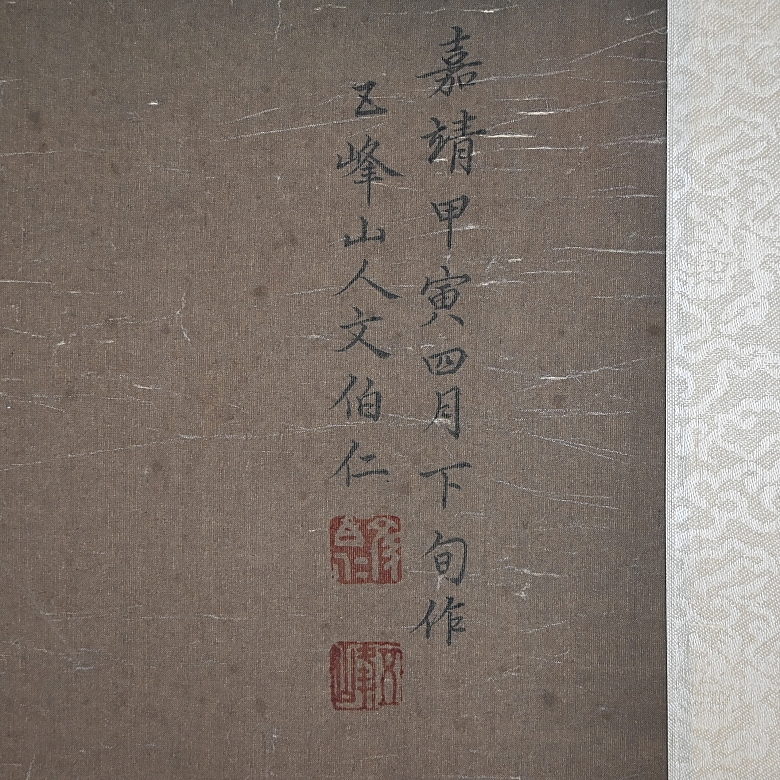 嘉靖甲寅四月下旬作
五峰山人文伯仁
五峰